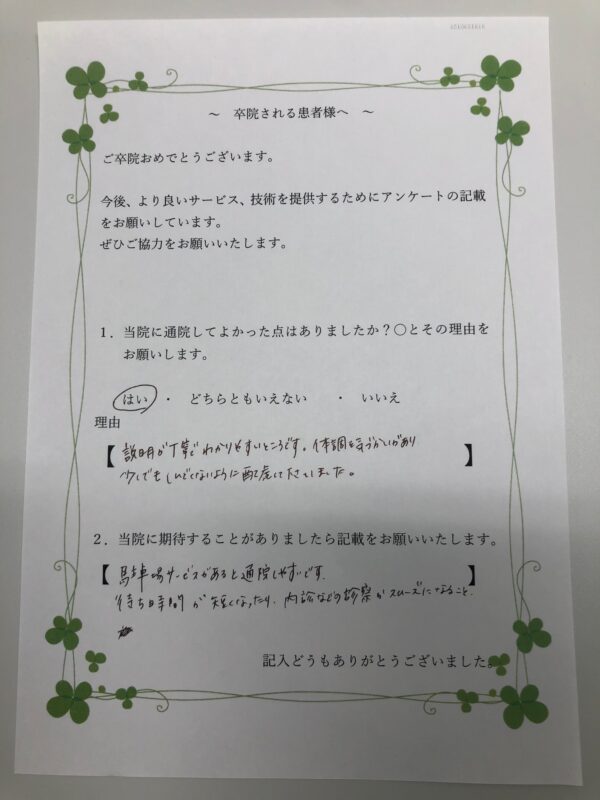 ～　卒院される患者様へ　～
ご卒院おめでとうございます。
今後、より良いサービス、技術を提供するためにアンケートの記載
をお願いしています。
ぜひご協力をお願いいたします。
１．当院に通院してよかった点はありましたか？〇とその理由を
お願いします。
はい　・　どちらともいえない　・　いいえ
理由
【 説明が丁寧でわかりやすいところです。体調を気づかいがあり 】
少しでもしんどくないように配慮して下さいました。
２．当院に期待することがありましたら記載をお願いいたします。
【 駐車場サービスがあると通院しやすいです。 】
待ち時間が短くなったり、内診などの診察がスムーズになること。
記入どうもありがとうございました。